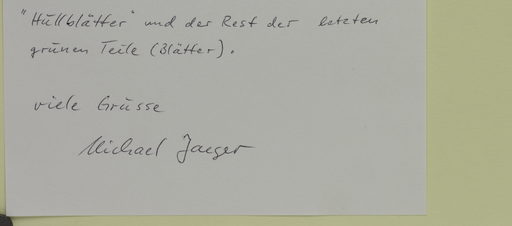 "Hüllblätter" und der Rest der letzten
grünen Teile (Blätter).
viele Grüsse
Michael Jaeger